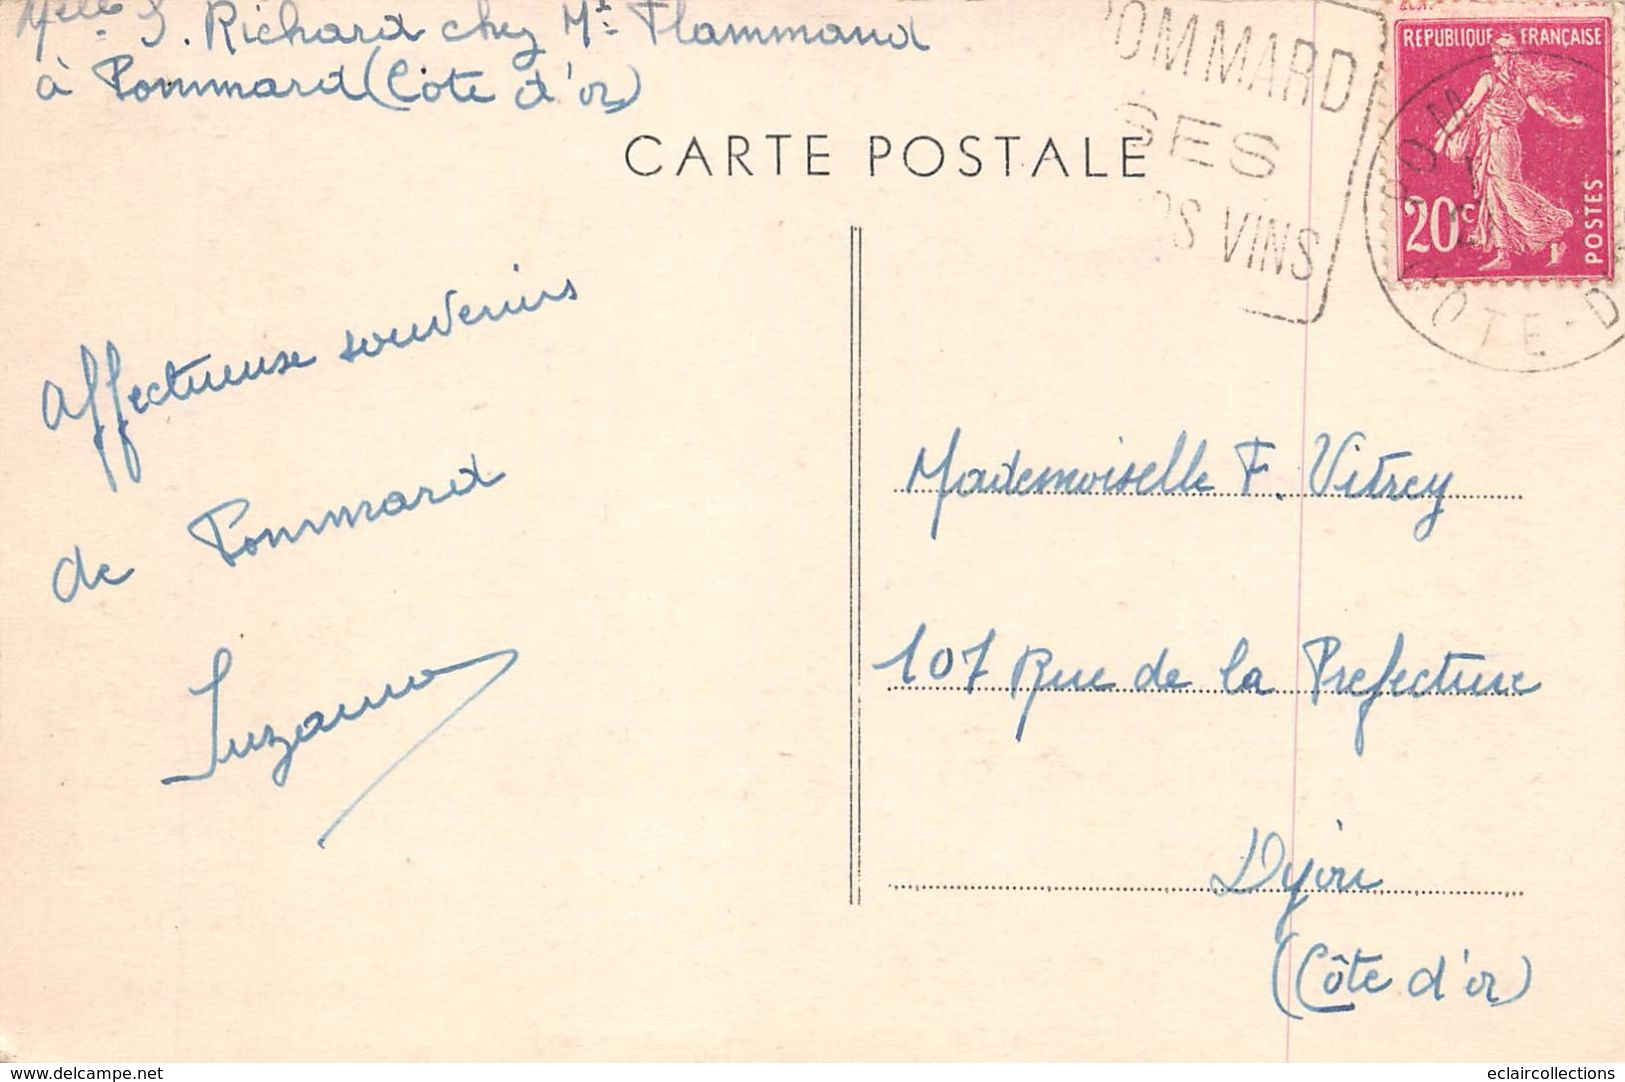 Melle S. Richard chez Mr Flammand
à Pommard (Côte d'or)
POMMARD
SES
VINS
RÉPUBLIQUE FRANÇAISE
20c
POSTES
COTE-D
CARTE POSTALE
Affectueuse souvenirs
de Pommard
Suzanne
Mademoiselle F. Vitrey
107 Rue de la Prefecture
Dijon
(Côte d'or)
www.delcampe.net
eclaircollections